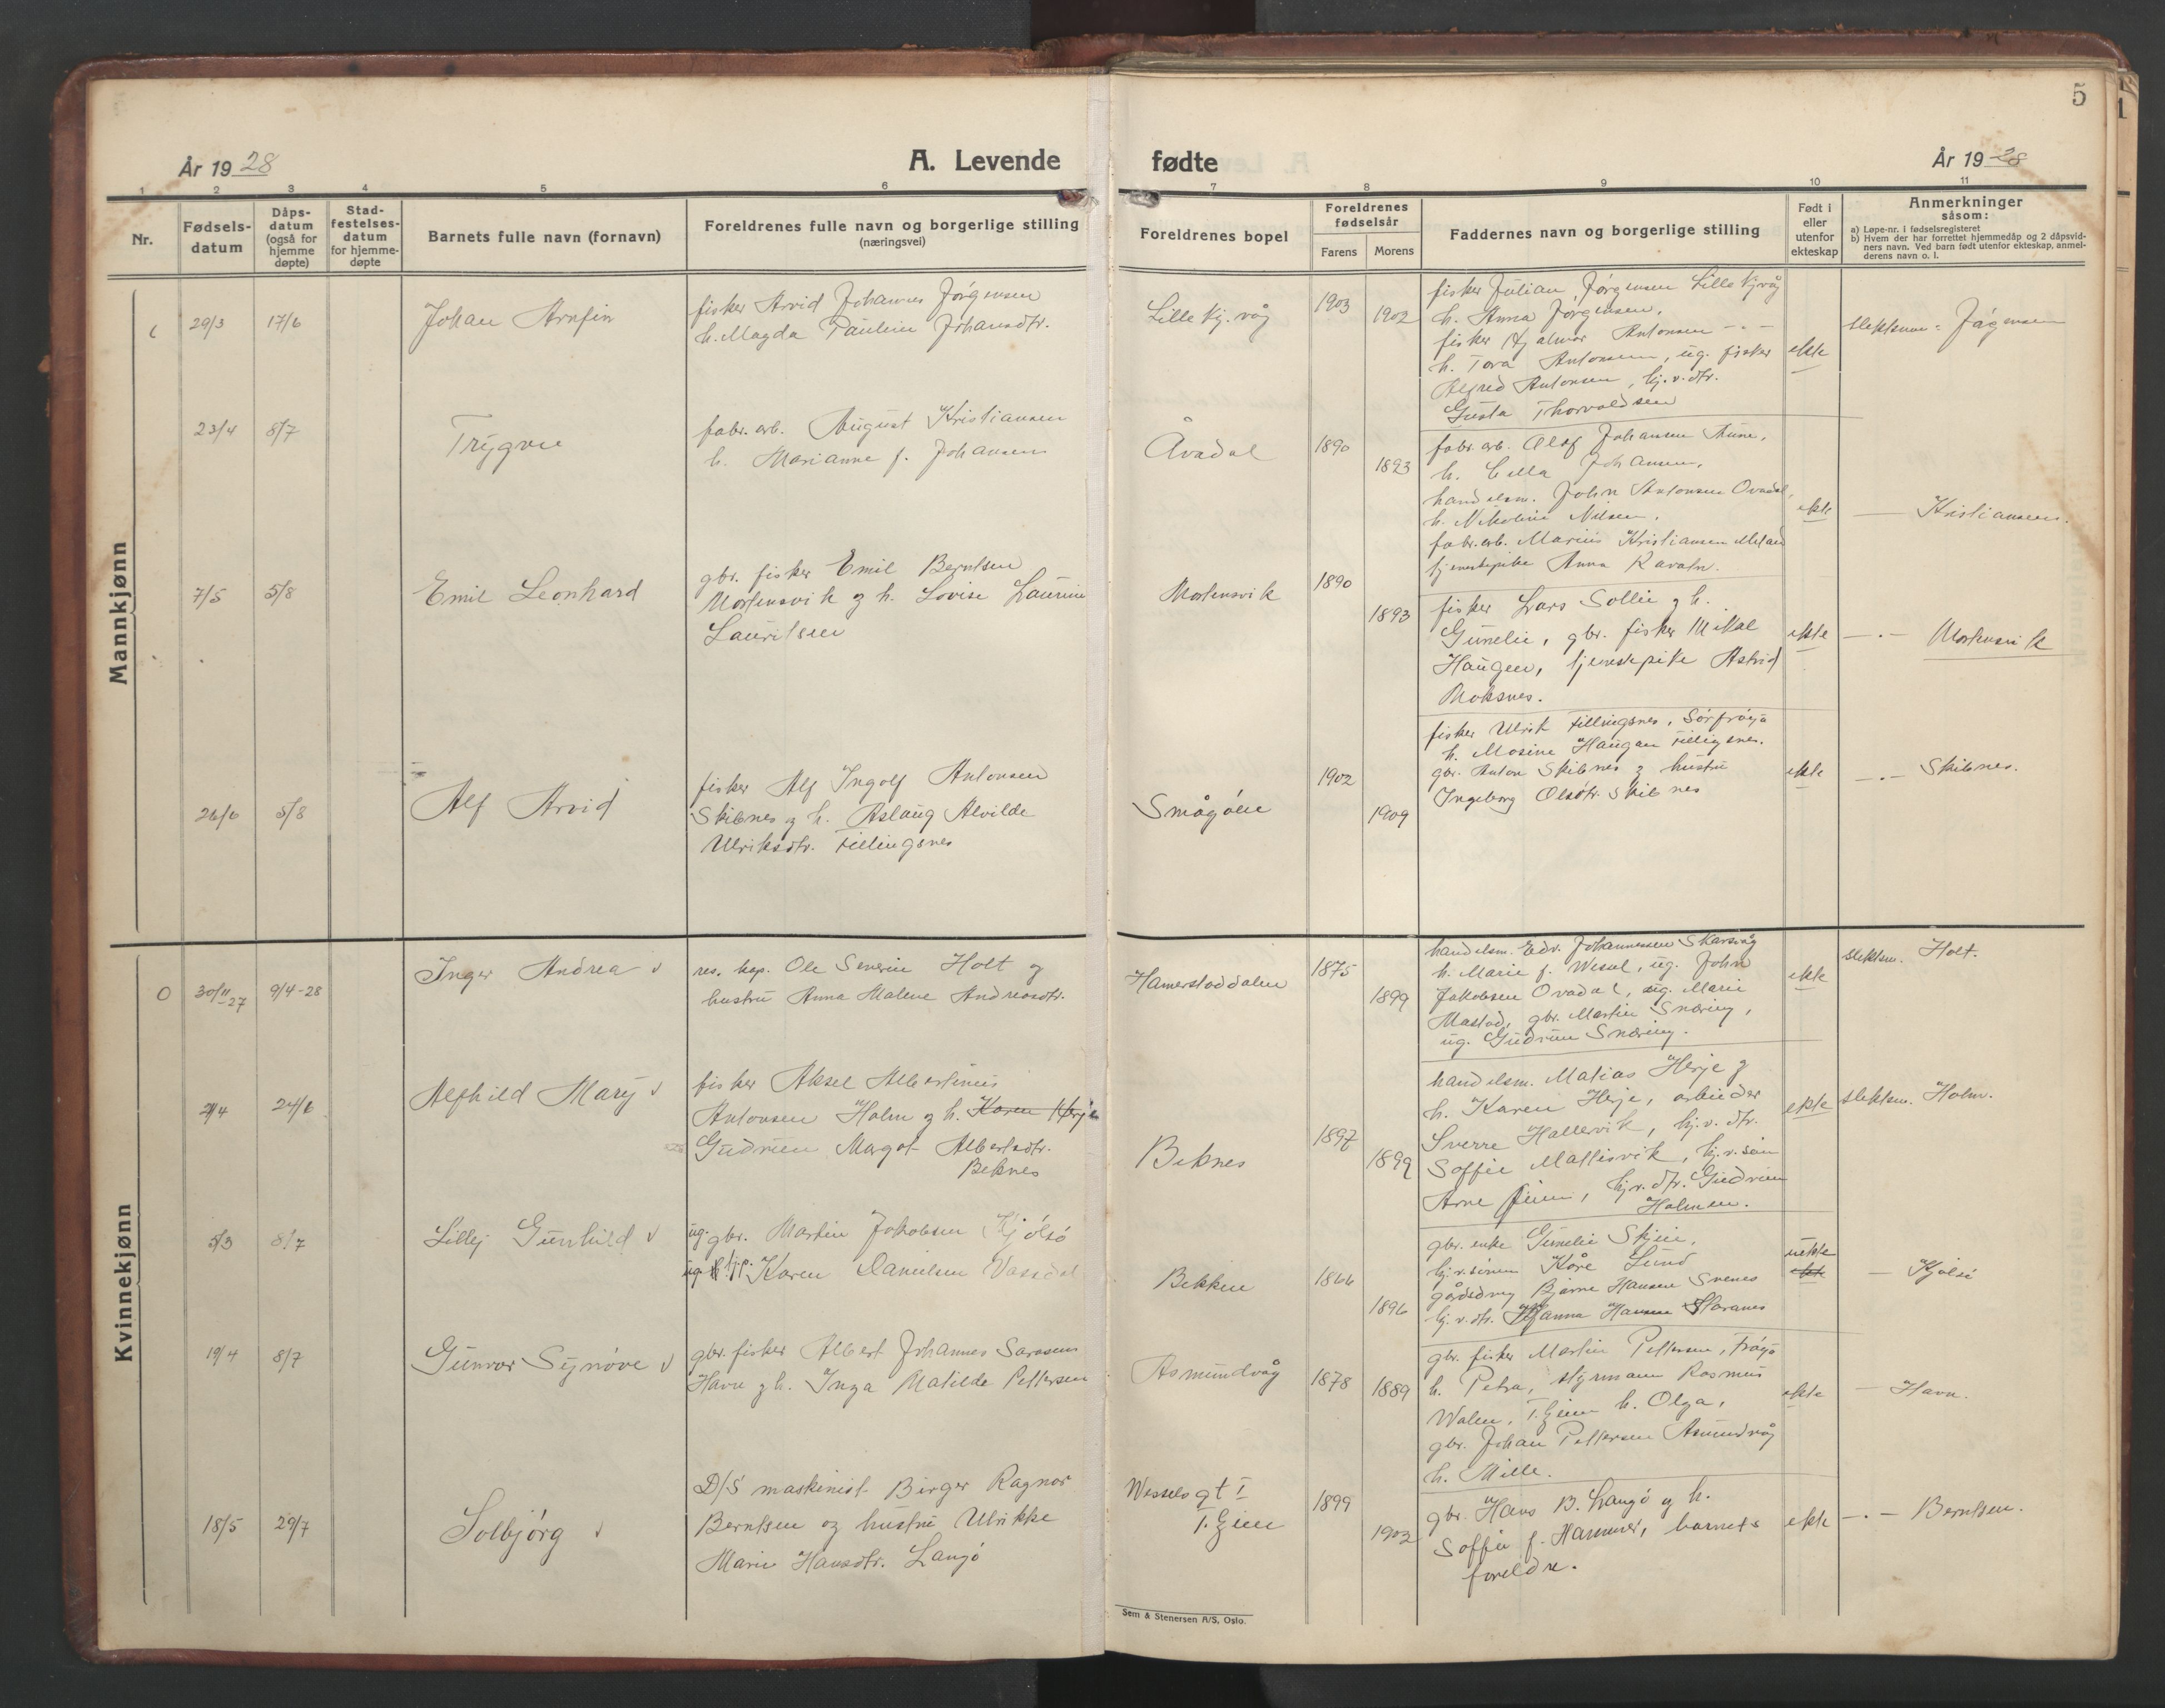 5
År 1928
A. Levende
fødte
År 1928
1 2 3 4 5 6 7 8 9 10 11
Nr.
Fødsels-
datum
Dåps-
datum
(også for
hjemme
døpte)
Stad-
festelses-
datum
for hjemme-
døpte
Barnets fulle navn (fornavn)
Foreldrenes fulle navn og borgerlige stilling
(næringsvei)
Foreldrenes bopel
Foreldrenes
fødselsår
Farens
Morens
Faddernes navn og borgerlige stilling
Født i
eller
utenfor
ekteskap
Anmerkninger
såsom:
a) Løpe-nr. i fødselsregisteret
b) Hvem der har forrettet hjemmedåp og 2 dåpsvid-
ners navn. Ved barn født utenfor ekteskap, anmel-
derens navn o. l.
Mannkjønn
29/3
17/6
Johan Arnfin
fisker Arvid Johannes Jörgensen
h. Magda Pauline Johansdtr.
Lille Kj.våg
1903
1902
fisker Julian Jörgensen Lille Kjvåg
h. Anna Jörgensen,
fisker Hjalmar Antonsen - " -
h. Tora Antonsen, ug. fisker
Alfred Antonsen, hj.v.dtr.
Gusta Thorvaldsen
ekte
slektsnavn: Jörgensen
23/4
8/7
Trygve
fabr. arb. August Kristiansen
h. Marianne f. Johansen
Åvadal
1890
1893
fabr. arb. Olaf Johansen Aune,
h. Ella Johansen,
handelsm. John Antonsen Ovadal,
h. Nikoline Nilsen,
fabr. arb. Marius Kristiansen Meland
tjenestepike Anna Ravatn.
ekte
— Kristiansen.
7/5
5/8
Emil Leonhard
gbr. fisker Emil Berntsen
Mortensvik og h. Lovise Laurine
Lauritsen
Mortensvik
1890
1893
fisker Lars Sollie og h.
Gunelie, gbr. fisker Mikal
Haugen, tjenestepike Astrid
Moksnes.
ekte
— . — Mortensvik
26/6
5/8
Alf Arvid
fisker Alf Ingolf Antonsen
Skibnes og h. Aslaug Alvilde
Ulriksdtr. Fillingsnes
Smågöli
1902
1909
fisker Ulrik Fillingsnes, Sörfröya
h. Mosine Haugan Fillingsnes.
gbr. Anton Skibnes og hustru
Ingeborg Olsdtr. Skibnes
ekte
— . — Skibnes.
Kvinnekjønn
0
30/11-27
9/4-28
Inger Andrea v
res. kap. Ole Severin Holt og
hustru Anna Malene Andreasdtr.
Hamerstaddalen
1875
1899
handelsm. Edv. Johannessen Skarsvåg
h. Marie f. Wessel, ug. John
Jakobsen Ovadal, ug. Marie
Mastad, gbr. Martin Snæring,
ug. Gudrun Snæring.
ekte
slektsn. Holt.
2/4
24/6
Alfhild Mary v
fisker Aksel Albertinius
Antonsen Holm og h. Karen Herje
Gudrun Margot Albertsdtr.
Beknes
Beknes
1897
1899
handelsm. Matias Herje og
h. Karen Herje, arbeider
Sverre Hallervik, hj.v.dtr.
Soffie Mallisvik, hj.v.sön
Arne , hj.v.dtr. Gudrun
Holmsen.
ekte
slektsn. Holm.
5/3
8/7
Lillej Gunhild v
ug. gbr. Martin Jakobsen Kjölsö
ug. tjp. Karen Danielsen Vassdal
Bekken
1866
1896
gbr. enke Gunelie Skjei,
hj.v.sönen Kåre Lund
gårdsdreng Bjarne Hansen Svenes
hj.v.dtr. Hanna Hansen
uekte
ekte
— Kjölsö
19/4
8/7
Gunvor Synöve v
gbr. fisker Albert Johannes Sarasens
Havn og h. Inga Matilde Pettersen
Asmundvåg
1878
1889
gbr. fisker Martin Pettersen, Fröya
h. Petra, styrmann Rasmus
Walen, T.hjem h. Olga,
gbr. Johan Pettersen Asmundvåg
h. Mille.
ekte
— Havn.
18/5
29/7
Solbjörg v
D/S maskinist Birger Ragnar
Berntsen og hustru Ulrikke
Marie Hansdtr. Langö
Wessels gt I
T.hjem
1899
1902
gbr. Hans B. Langö og h.
Soffie f. Hammer, barnets
foreldre.
ekte
— . — Berntsen.
Sem & Stenersen A/S, Oslo.